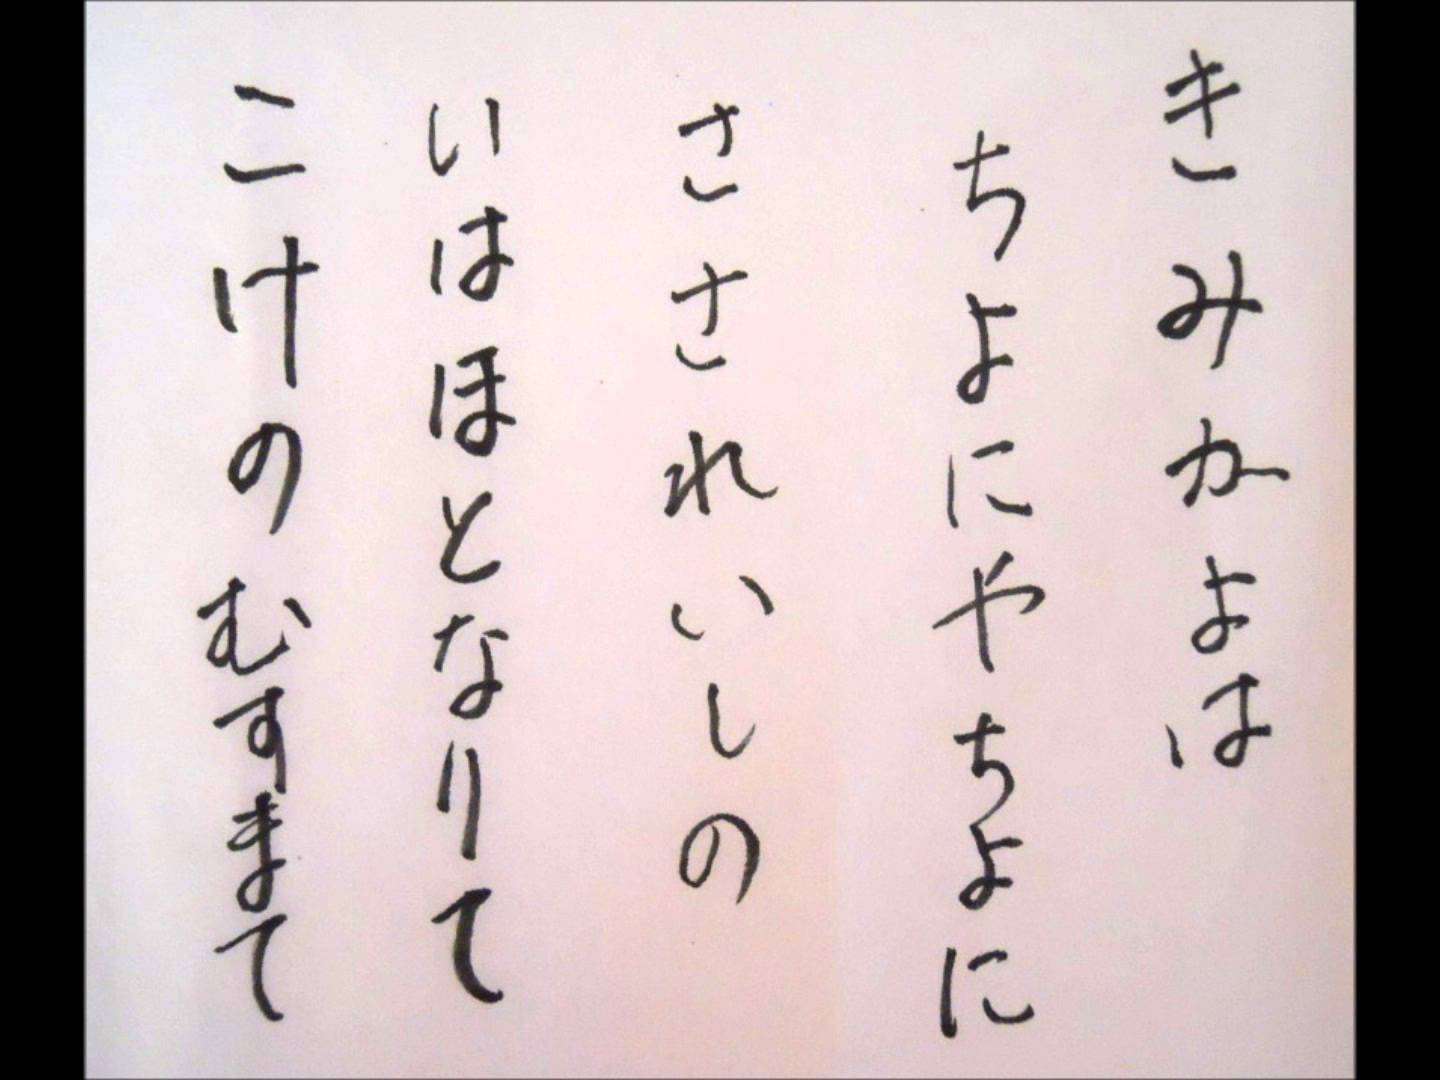 きみかよは
ちよにやちよに
さされいしの
いはほとなりて
こけのむすまて